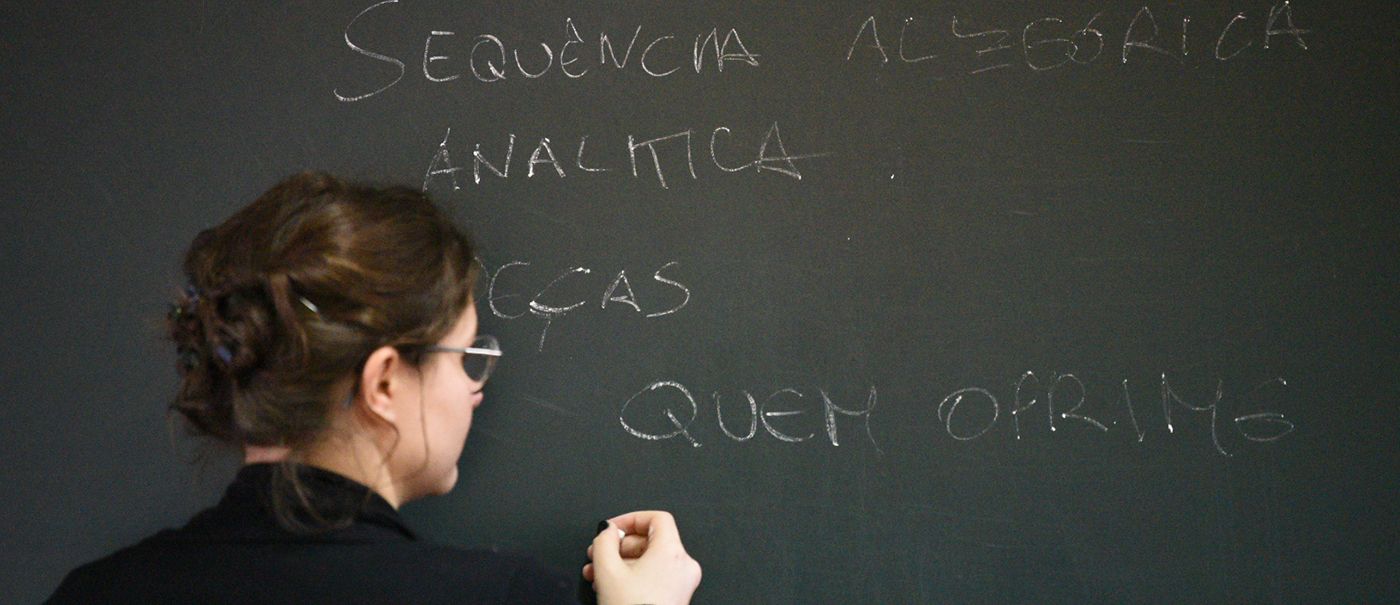 SEQUÊNCIA ALEGÓRICA
ANALITICA
PEÇAS
QUEM OPRIME